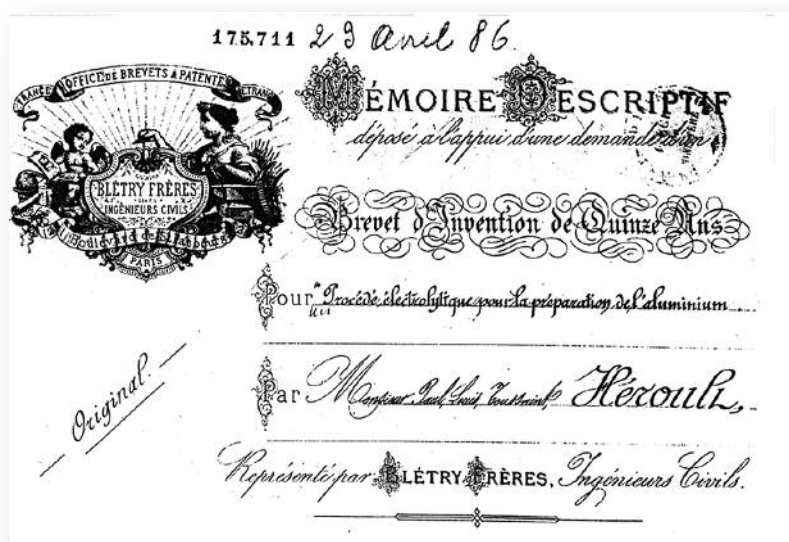 175.711 23 Avril 86.
OFFICE DE BREVETS & PATENTES
FRANCE ETRANGER
BLÉTRY FRÈRES
INGÉNIEURS CIVILS
Boulevard de Strasbourg
PARIS
MÉMOIRE DESCRIPTIF
déposé à l'appui d'une demande d'un
Brevet d'Invention de Quinze Ans
Pour "un Procédé électrolytique pour la préparation de l'aluminium
Original.
Par Monsieur Paul, Louis, Toussaint, Héroult,
Représenté par BLÉTRY FRÈRES, Ingénieurs Civils.